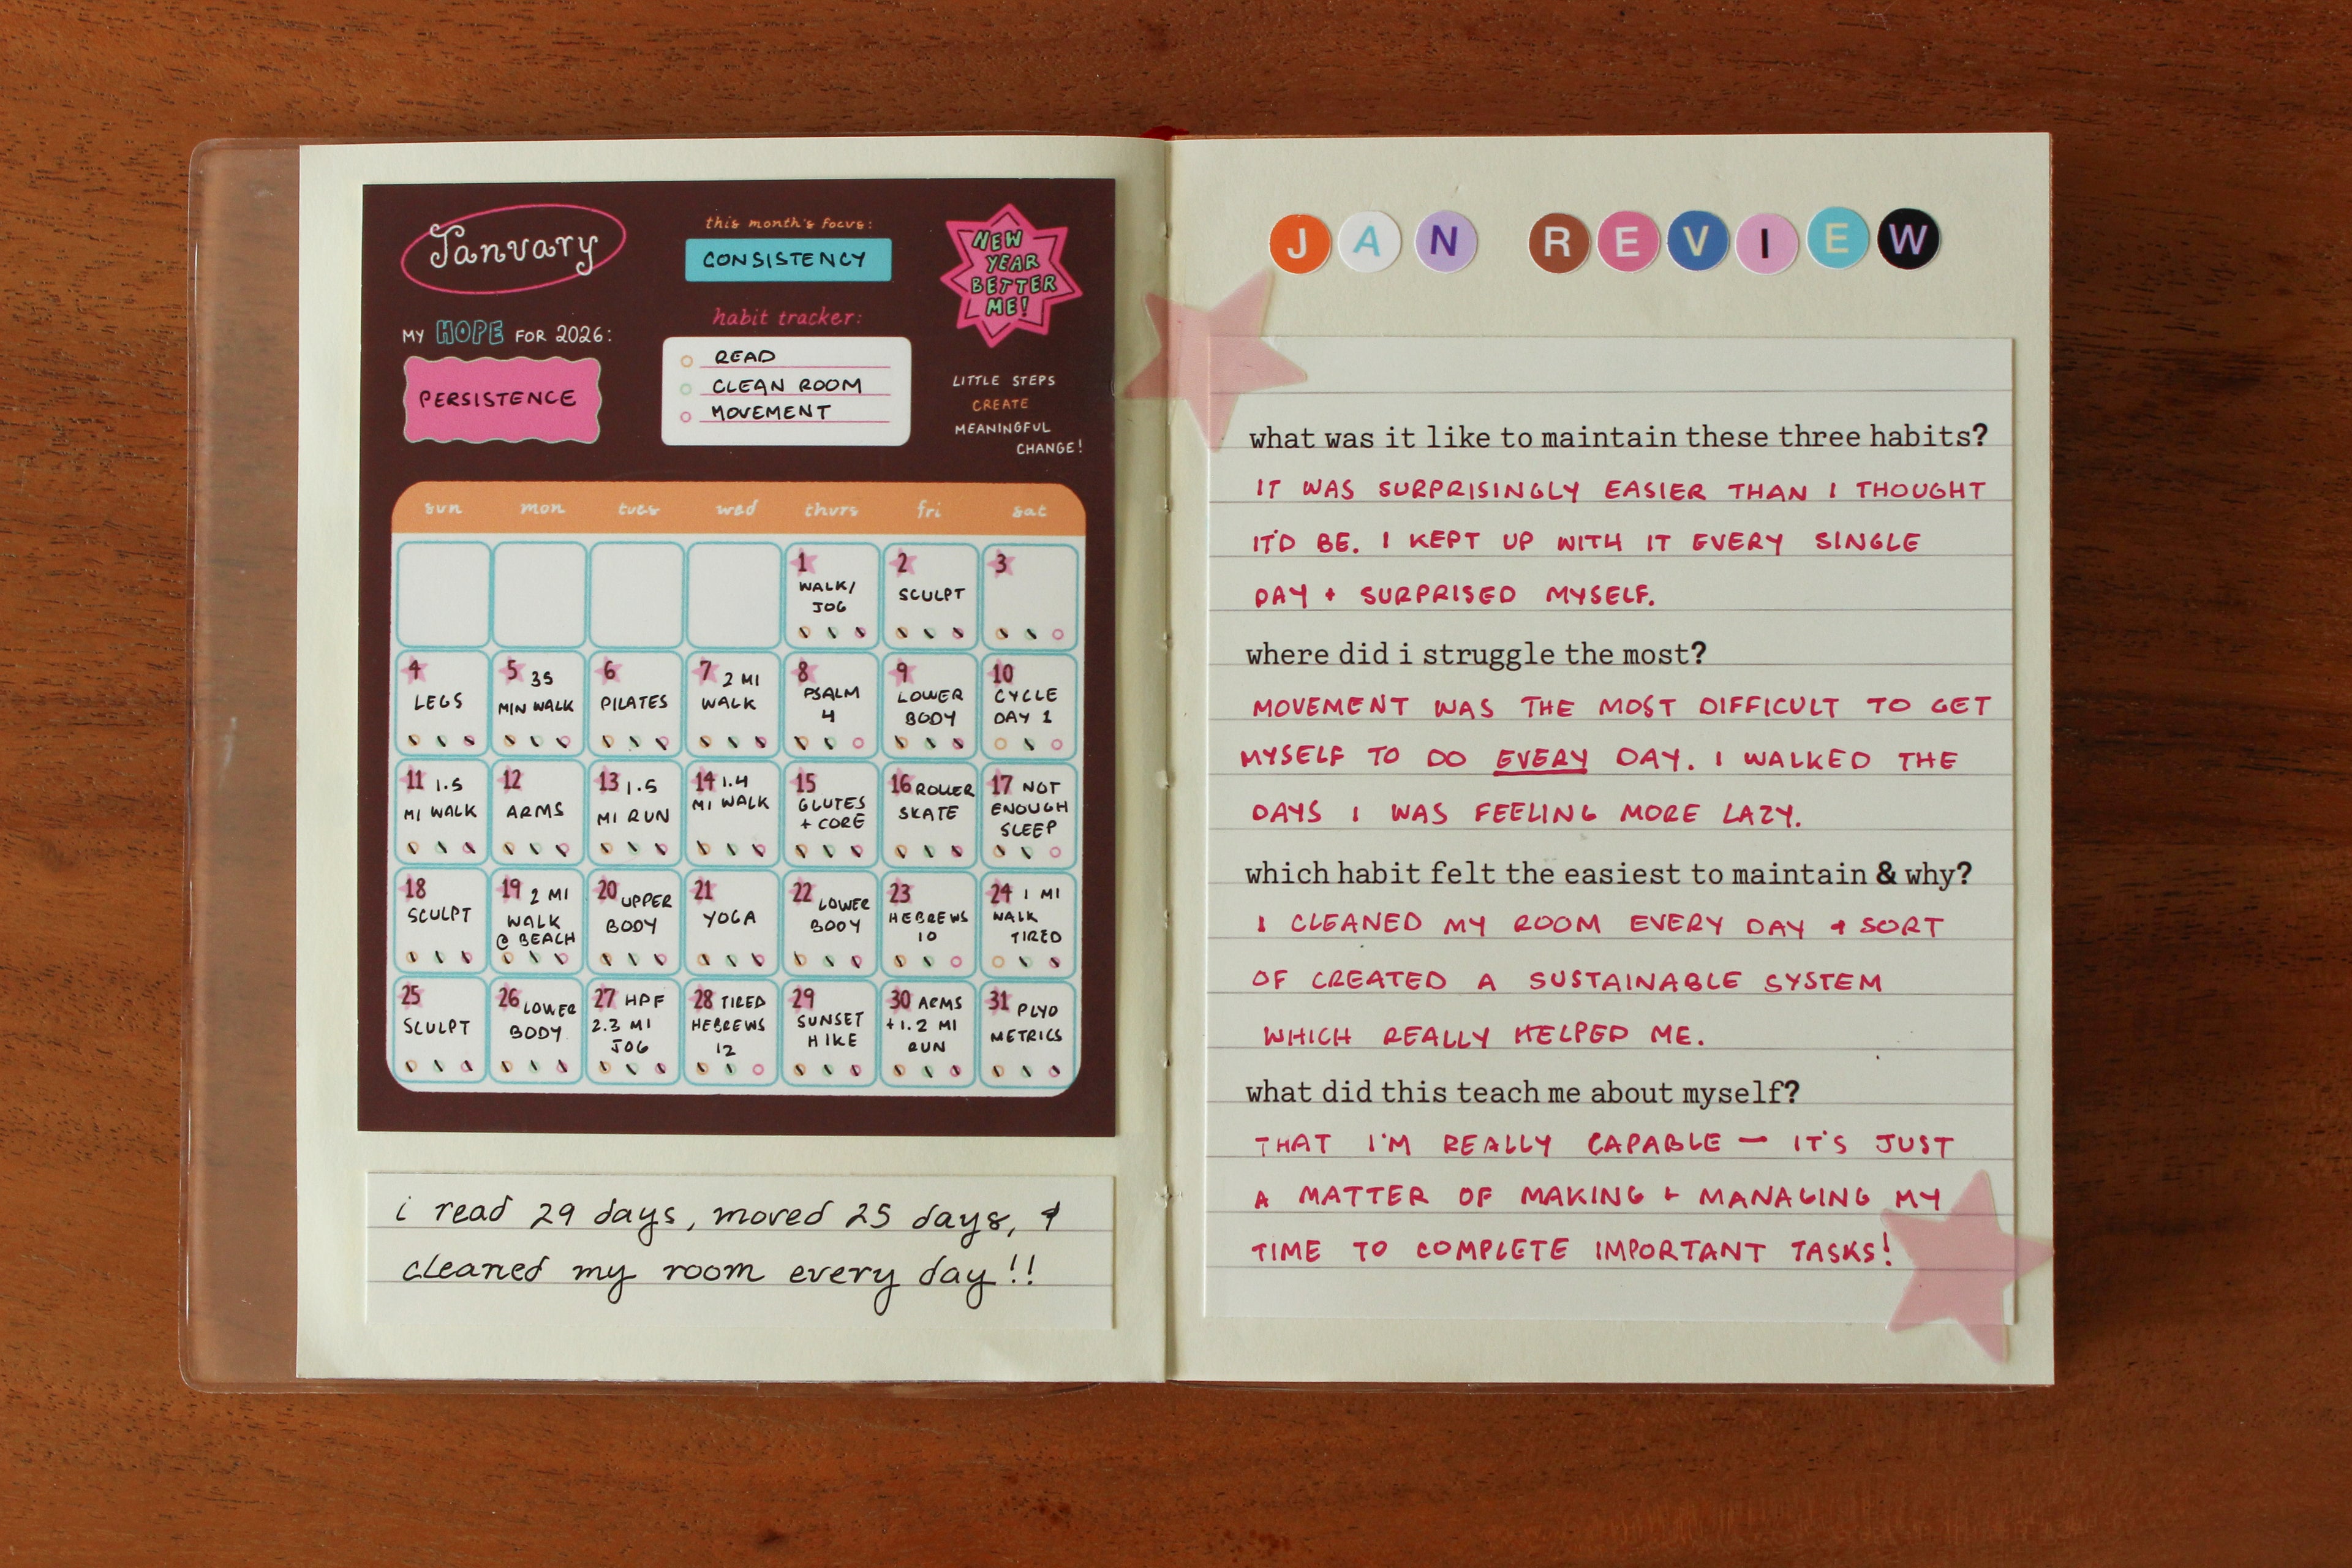 January
this month's focus:
CONSISTENCY
NEW
YEAR
BETTER
ME!
MY HOPE FOR 2026:
PERSISTENCE
habit tracker:
READ
CLEAN ROOM
MOVEMENT
LITTLE STEPS
CREATE
MEANINGFUL
CHANGE!
sun mon tues wed thurs fri sat
1
WALK/
JOG
2
SCULPT
3
4
LEGS
5 35
MIN WALK
6
PILATES
7 2 MI
WALK
8
PSALM
4
9
LOWER
BODY
10
CYCLE
DAY 1
11 1.5
MI WALK
12
ARMS
13 1.5
MI RUN
14 1.4
MI WALK
15
GLUTES
+ CORE
16 ROLLER
SKATE
17 NOT
ENOUGH
SLEEP
18
SCULPT
19 2 MI
WALK
@ BEACH
20 UPPER
BODY
21
YOGA
22 LOWER
BODY
23
HEBREWS
10
24 1 MI
WALK
TIRED
25
SCULPT
26 LOWER
BODY
27 HPF
2.3 MI
JOG
28 TIRED
HEBREWS
12
29
SUNSET
HIKE
30 ARMS
+ 1.2 MI
RUN
31 PLYO
METRICS
i read 29 days, moved 25 days, &
cleaned my room every day!!
JAN REVIEW
what was it like to maintain these three habits?
IT WAS SURPRISINGLY EASIER THAN I THOUGHT
IT'D BE. I KEPT UP WITH IT EVERY SINGLE
DAY + SURPRISED MYSELF.
where did i struggle the most?
MOVEMENT WAS THE MOST DIFFICULT TO GET
MYSELF TO DO EVERY DAY. I WALKED THE
DAYS I WAS FEELING MORE LAZY.
which habit felt the easiest to maintain & why?
I CLEANED MY ROOM EVERY DAY + SORT
OF CREATED A SUSTAINABLE SYSTEM
WHICH REALLY HELPED ME.
what did this teach me about myself?
THAT I'M REALLY CAPABLE — IT'S JUST
A MATTER OF MAKING + MANAGING MY
TIME TO COMPLETE IMPORTANT TASKS!